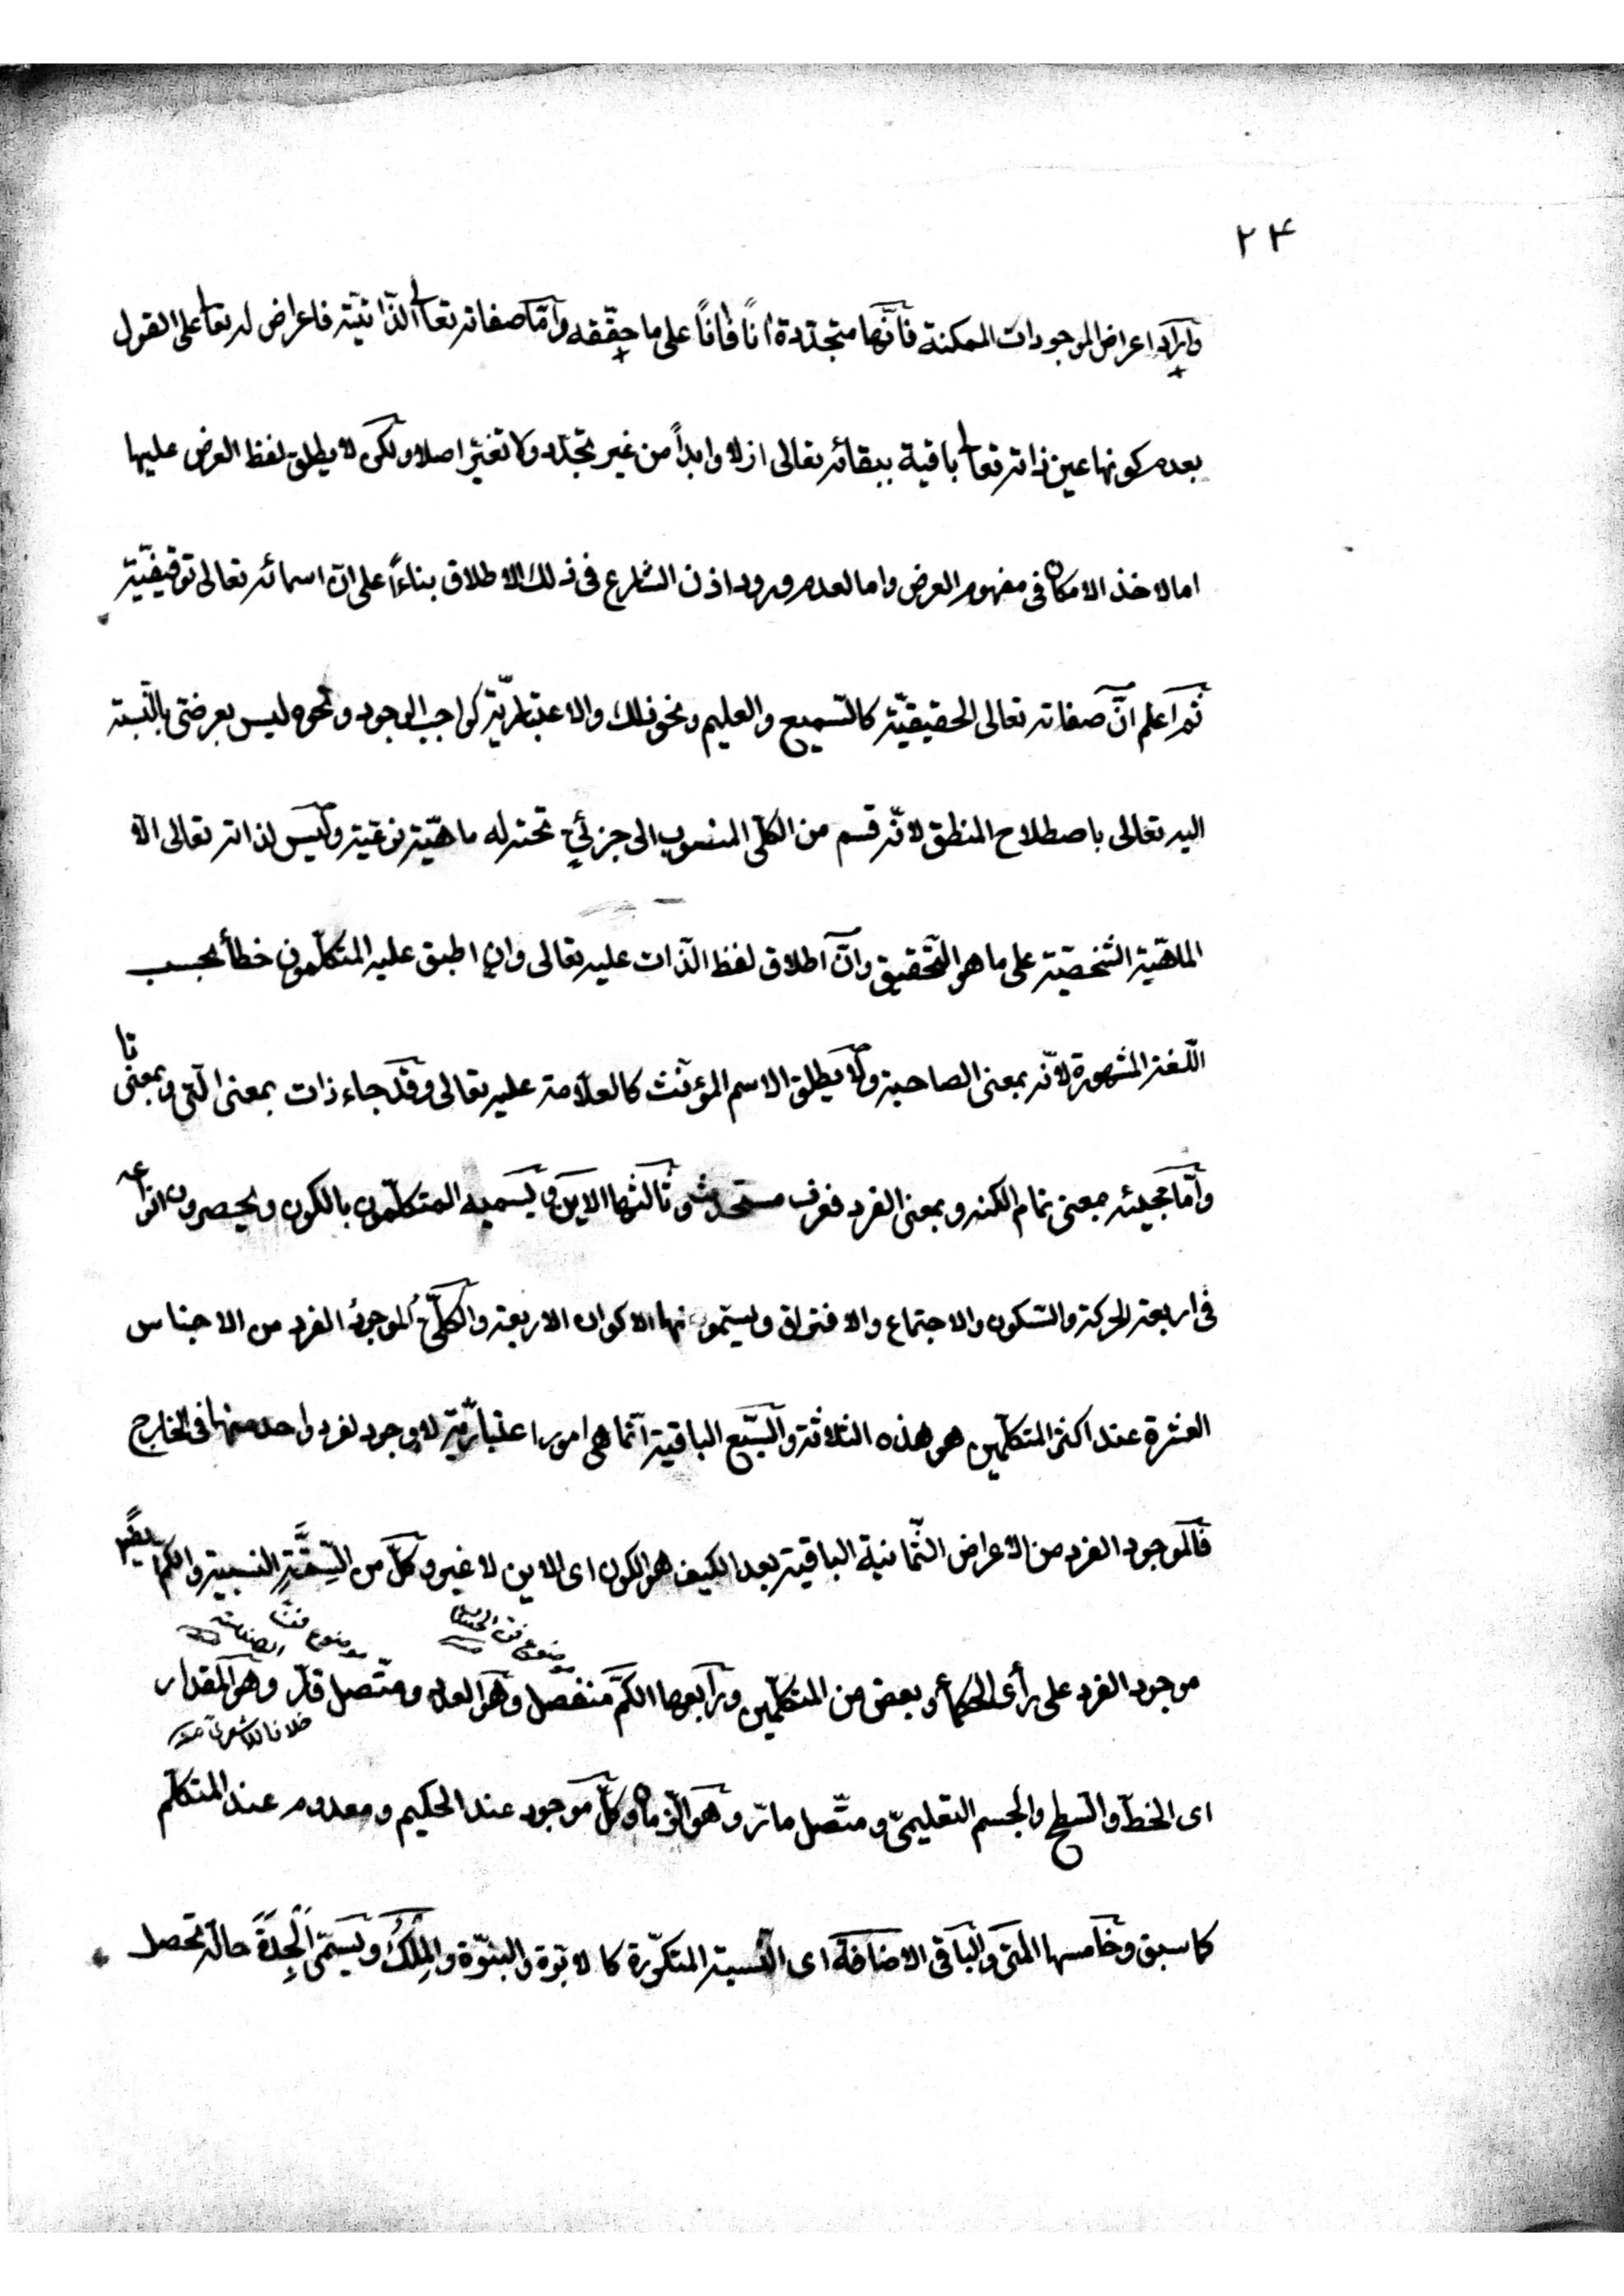 ٢٤
واراد اعراض الموجودات الممكنة فانّها متجدّدة اٰناً فاٰناً على ما حقّقه وامّا صفاته تعالى الذّاتيّة فاعراض له تعالى على القول
بعدم كونها عين ذاته تعالى باقية ببقائه تعالى ازلا وابداً من غير تجدّد ولا تغيّر اصلا ولكن لا يطلق لفظ العرض عليها
اما لاخذ الامكان فى مفهوم العرض واما لعدم ورود اذن الشارع فى ذلك الاطلاق بناءً على انّ اسمائه تعالى توقيفيّة
ثم اعلم انّ صفاته تعالى الحقيقيّة كالسّميع والعليم ونحو ذلك والاعتباريّة كواجب الوجود ونحوه ليس بعرضى بالنّسبة
اليه تعالى باصطلاح المنطق لانّه قسم من الكلّى المنسوب الى جزئيّ تحته له ماهيّة نوعيّة وليس لذاته تعالى الّا
الماهيّة الشّخصيّة على ما هو التّحقيق وانّ اطلاق لفظ الذّات عليه تعالى وان اطبق عليه المتكلّمون خطأ بحسب
اللّغة المشهورة لانّه بمعنى الصاحبة ولا يطلق الاسم المؤنّث كالعلّامة عليه تعالى وقد جاء ذات بمعنى الّتى وبمعنى
وامّا مجيئه بمعنى تمام الكنه وبمعنى الفرد فعرف مستحدث وثالثها الاين ويسميه المتكلّمون بالكون ويحصرون انواعه
فى اربعة الحركة والسّكون والاجتماع والافتراق ويسمّونها الاكوان الاربعة والكلّىّ الموجود الفرد من الاجناس
العشرة عند اكثر المتكلّمين هو هذه الثلاثة والسّبع الباقية انّما هى امور اعتباريّة لا وجود لفرد واحد منها فى الخارج
فالموجود الفرد من الاعراض الثّمانية الباقية بعد الكيف هو الكون اى الاين لا غير وكلّ من السِّتَّةِ النسبية والكم
موضوع فنّ الحساب
موضوع فنّ
موجود الفرد على رأى الحكماء وبعض من المتكلّمين ورابعها الكمّ منفصل وهو العدد ومتّصل قارّ وهو المقدار
خلافا للاشعرى منه
اى الخطّ والسّطح والجسم التعليمىّ ومتّصل مارّ وهو الزمان وكلّ موجود عند الحكيم ومعدوم عند المتكلّم
كما سبق وخامسها المتى والباقى الاضافة اى النّسبة المتكرّرة كالابوّة والبنوّة والمِلْكُ ويسمّى الْجِدَةَ حالة تحصل